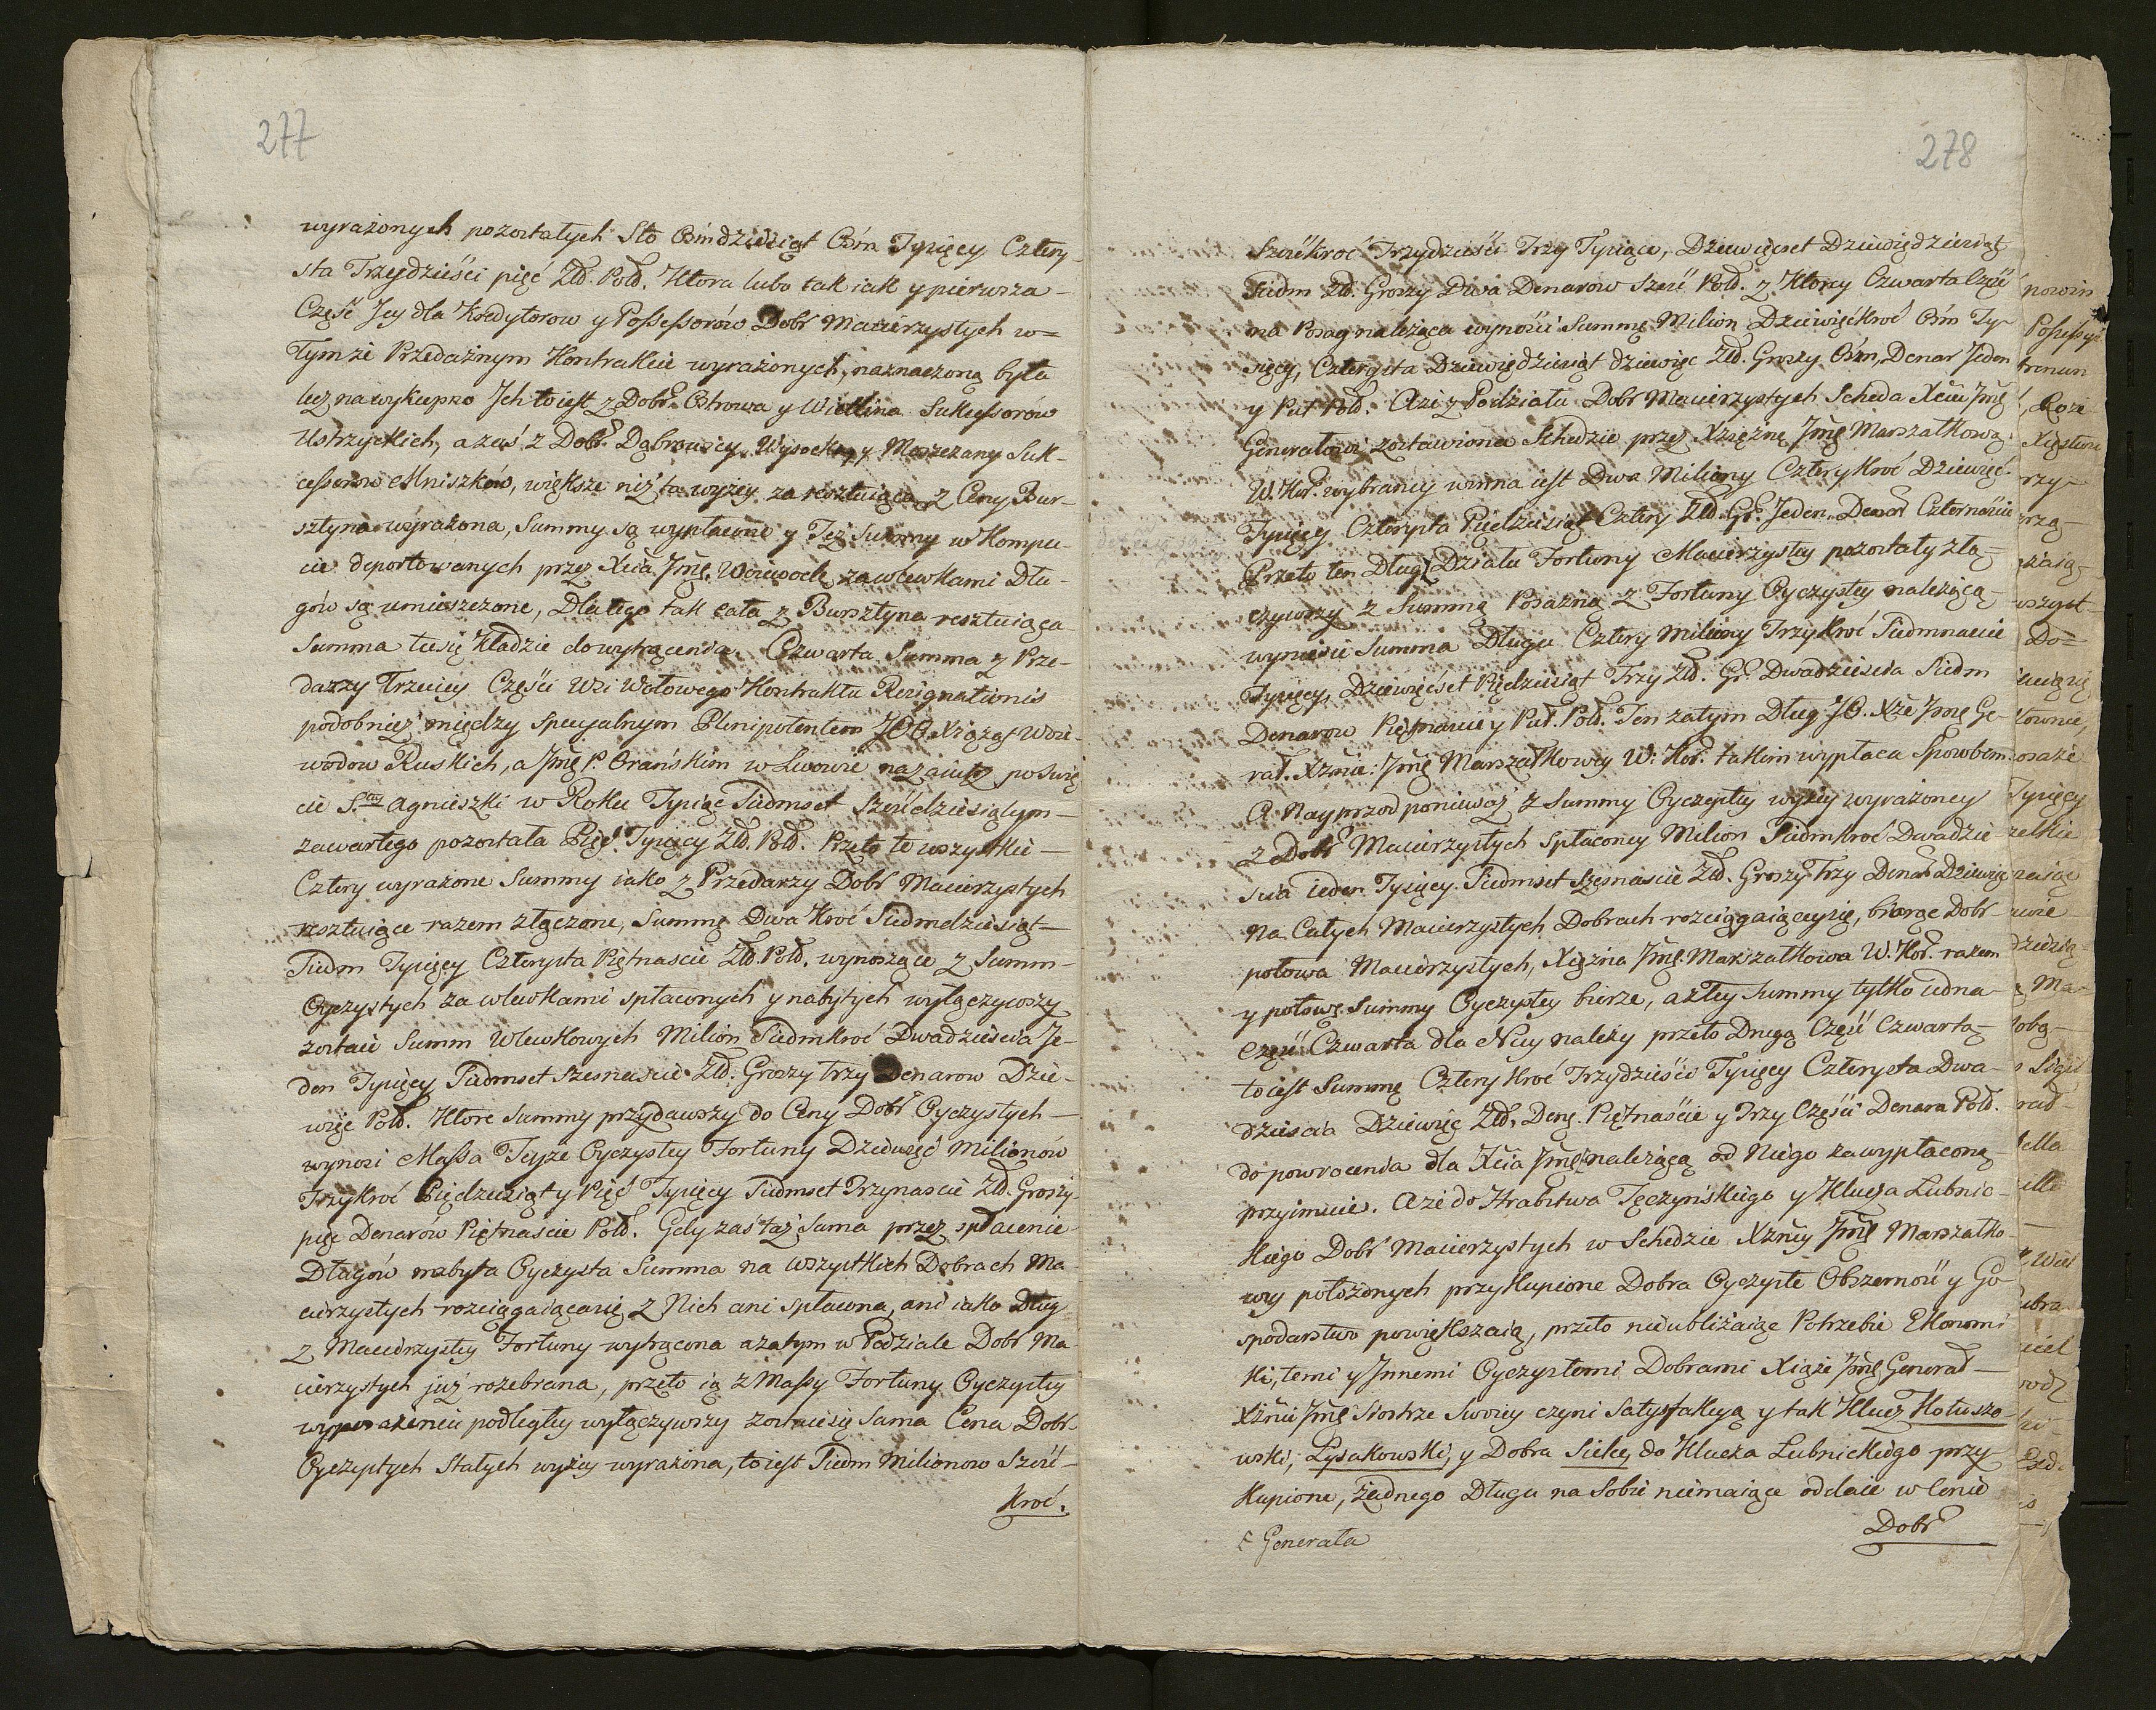 277
wyrażonych pozostałych Sto Ośmdziesiąt Ośm Tysięcy Cztery-
sta Trzydzieści pięć Złł. Poll. Ktora lubo tak iak y pierwsza —
Część Jey dla Kredytorow y Possessorów Dobr Macierzystych w=
Tymże Przedażnym Kontrakcie wyrażonych, naznaczoną była
lecz na wykupno Jch to iest z Dobr Ostrowa y Wietlina Sukcessorów
Ustrzyckich, a zaś z Dobr Dąbrowicy Wysocka y Moszczany Suk-
cessorow Mniszków, większe niż ta wyżey za resztuiącą z Ceny Bur-
sztyna wyrażona, Summy są wypłacone y Też Summy w Kompu-
cie deportowanych przez Xcia Jmę. Woiewodę za wlewkami Dłu-
gów są umieszczone, Dlatego tak cała z Bursztyna resztuiąca
Summa tu się kładzie do wytrącenia. Czwarta Summa z Prze-
dazzy Trzeciey Części Wsi Wołowego Kontraktu Resignationis
podobnież między specyalnym Plenipotentem JOO. Xiążąt Woie-
wodow Ruskich, a Jmę P. Orańskim w Lwowie nazaiutrz po Świę-
cie S.tey Agnieszki w Roku Tysiąc Siedmset Sześćdziesiątym —
zawartego pozostała Pięć Tysięcy Złł. Poll. Przeto te wszystkie —
Cztery wyrażone Summy iako z Przedarzy Dobr Macierzystych
resztuiące razem złączone, Summę Dwa kroć Siedmdziesiąt —
Siedm Tysięcy Czterysta Piętnascie Złł. Poll. wynoszące z Summ —
Oyczystych za wlewkami spłaconych y nabytych wyłączywszy
zostaie Summ Wlewkowych Milion Siedmkroć Dwadzieścia Je-
den Tysięcy Siedmset szesnascie Złł. Groszy trzy Denarow Dzie-
więć Poll. Ktore Summy przydawszy do Ceny Dobr Oyczystych —
wynosi Massa Teyże Oyczystey Fortuny Dziewięć Milionów
Trzykroć Pięćdziesiąt y Pięć Tysięcy Siedmset Trzynascie Złł. Groszy-
pięć Denarów Piętnascie Poll. Gdy zaś taż Sama przez spłacenie
Długów nabyta Oyczysta Summa na wszystkich Dobrach Ma
cierzystych rozciągaiącasię z Nich ani spłacona, ani iako Dług
z Macierzystey Fortuny wytrącona a zatym w Podziale Dobr Ma
cierzystych już rozebrana, przeto ią z Massy Fortuny Oyczystey
wyposażeniu podległey wyłączywszy zostaie się Sama Cena Dobr
Oyczystych Stałych wyżey wyrażona, to iest Siedm Milionow Sześć-
kroć.
278
Sześćkroć Trzydzieści Trzy Tysiące, Dziewięćset Dziewięćdziesiąt
Siedm Złł. Groszy Dwa Denarow Sześć Poll. z Ktorey Czwarta Część
na Posag należąca wynosi Summę Milion Dziewięćkroć Ośm Ty-
sięcy, Czterysta Dziewięćdziesiąt dziewięc Złł. Groszy Ośm, Denar Jeden
y Puł Poll. A że z Podziału Dobr Macierzystych Scheda Xcia Jmę
Generałowi zostawiona Schedzie przez Xzięźnę Jmę Marszałkową
W. Kor. wybraney winna iest Dwa Miliony Czterykroć Dziewięć-
Tysięcy Czterysta Pięćdziesiąt Cztery Złł. Gr. Jeden Denar Czternaście
Przeto ten Dług Działu Fortuny Macierzystey pozostały złą-
czywszy z Summą Posazną z Fortuny Oyczystey należącą-
wyniesie Summa Długu Cztery Miliony Trzykroć Siedmnaście
Tysięcy, Dziewięćset Pięćdziesiąt Trzy Złł. Gr. Dwadzieścia Siedm
Denarow Piętnascie y Puł. Poll. Ten zatym Dług JO. Xże Jmę Ge-
rał. Xźnie: Jmę Marszałkowey W: Kor. takim wypłaca Sposobem.
A Nayprzod ponieważ z Summy Oyczystey wyżey wyrażoney
z Dobr Macierzystych spłaconey Milion Siedmkroć Dwadzie-
ścia ieden Tysięcy Siedmset szesnascie Złł. Groszy Trzy Denar Dziewięć
na Całych Macierzystych Dobrach rozciągaiącysię, biorąc Dobr
połowa Macierzystych, Xiężna Jmę. Marszałkowa W. Kor. razem
y połowę Summy Oyczystey bierze, a z tey Summy tylko iedna-
część Czwarta dla Niey należy przeto Drugą Część Czwartą-
to iest Summę Czterykroć Trzydzieści Tysięcy Czterysta Dwa-
dzieścia Dziewięć Złł. Dena. Piętnaście y Trzy Części Denara Poll.
do powrocenia dla Xcia Jmę należącą od Niego za wypłaconą
przyimuie. A że do Hrabstwa Tęczyńskiego y Klucza Lubnic-
kiego Dobr Macierzystych w Schedzie Xźney Jmę Marszałko-
wey położonych przykupione Dobra Oyczyste Obszerność y Go
spodarstwo powiększaią, przeto nieubliżaiąc Potrzebie Ekonomi
ki, temi y Jnnemi Oyczystemi Dobrami Xiąże Jmę Generał —
Xźnie Jmę Siostrze Swoiey czyni Satysfakcyą y tak Klucz Kotuszo-
wski, Łysakowski, y Dobra Sielec, do Klucza Lubnickiego przy
kupione, żadnego Długu na Sobie niemaiące oddaie w Cenie
Dobr
Generała